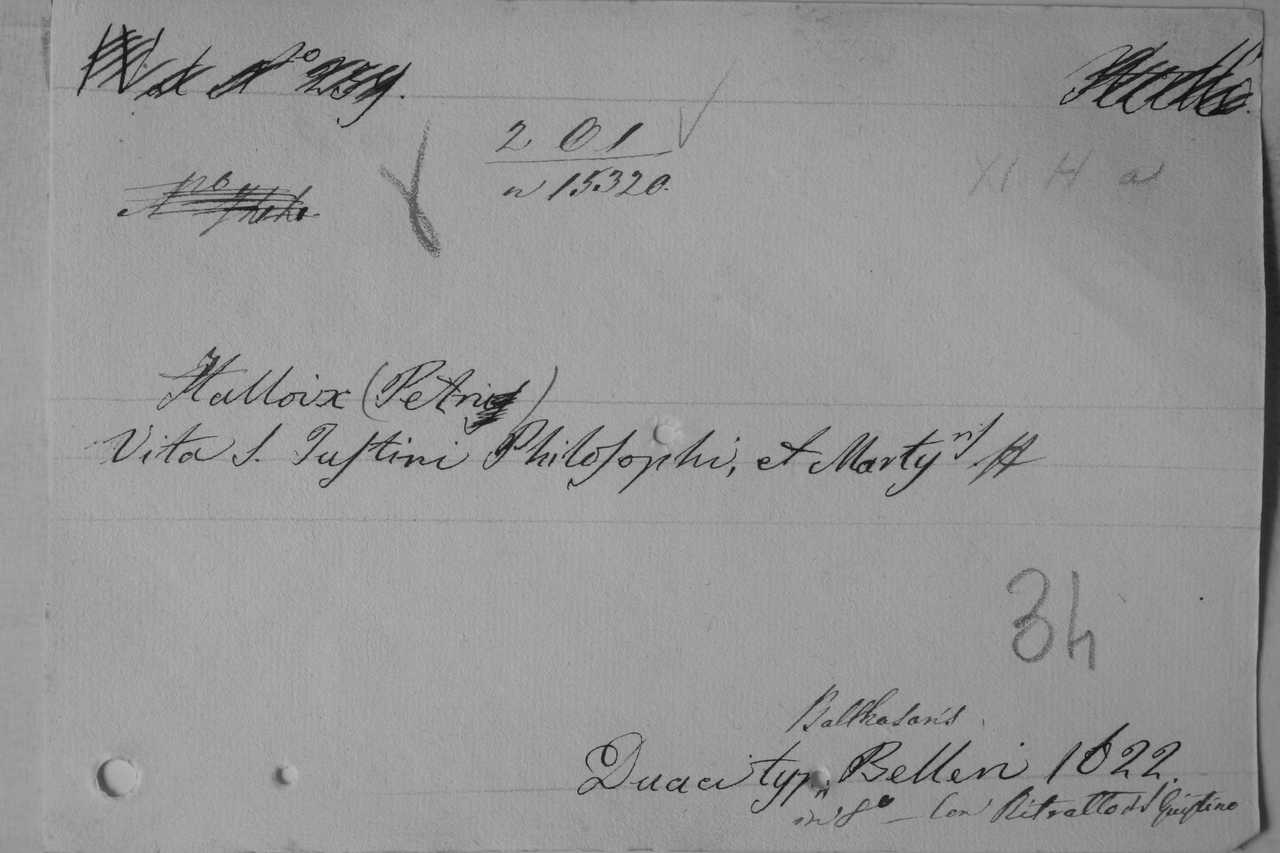 N.o 239.
2 01
n 15320.
XI H a
Halloix (Petri)
Vita S. Justini Philosophi, et Martyris
34
Balthasaris
Duaci typ. Belleri 1622.
in 8.o – Con Ritratto di S. Giustino